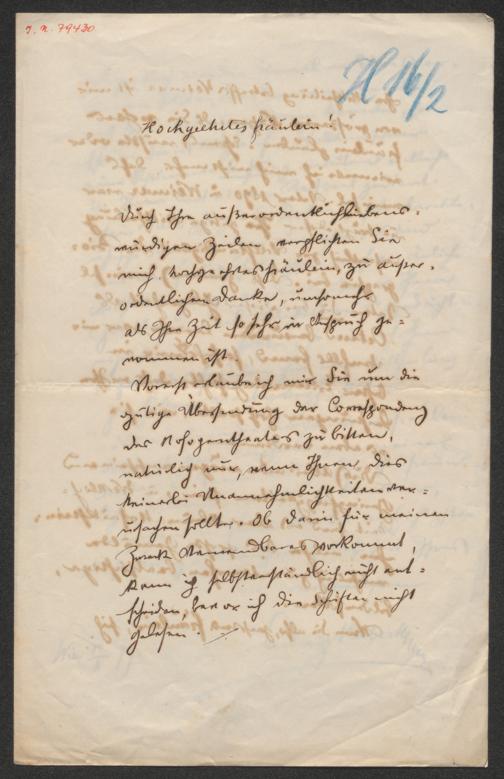 J. N. 79430
H 16/2
Hochgeehrtes Fräulein!
Durch Ihre außerordentlich liebens-
würdigen Zeilen verpflichten Sie
mich, hochgeehrtes Fräulein, zu außer-
ordentlichem Danke, umsomehr
als Ihre Zeit so sehr in Anspruch ge-
nommen ist.
Vorerst erlaube ich mir Sie um die
gütige Übersendung der Correspondenz
des Hofoperntheaters zu bitten,
natürlich nur, wenn Ihnen dies
keinerlei Unannehmlichkeiten ver-
ursachen sollte. Ob darin für meinen
Zweck Verwendbares vorkommt,
kann ich selbstverständlich nicht ent-
scheiden, bevor ich die Schriften nicht
gelesen.